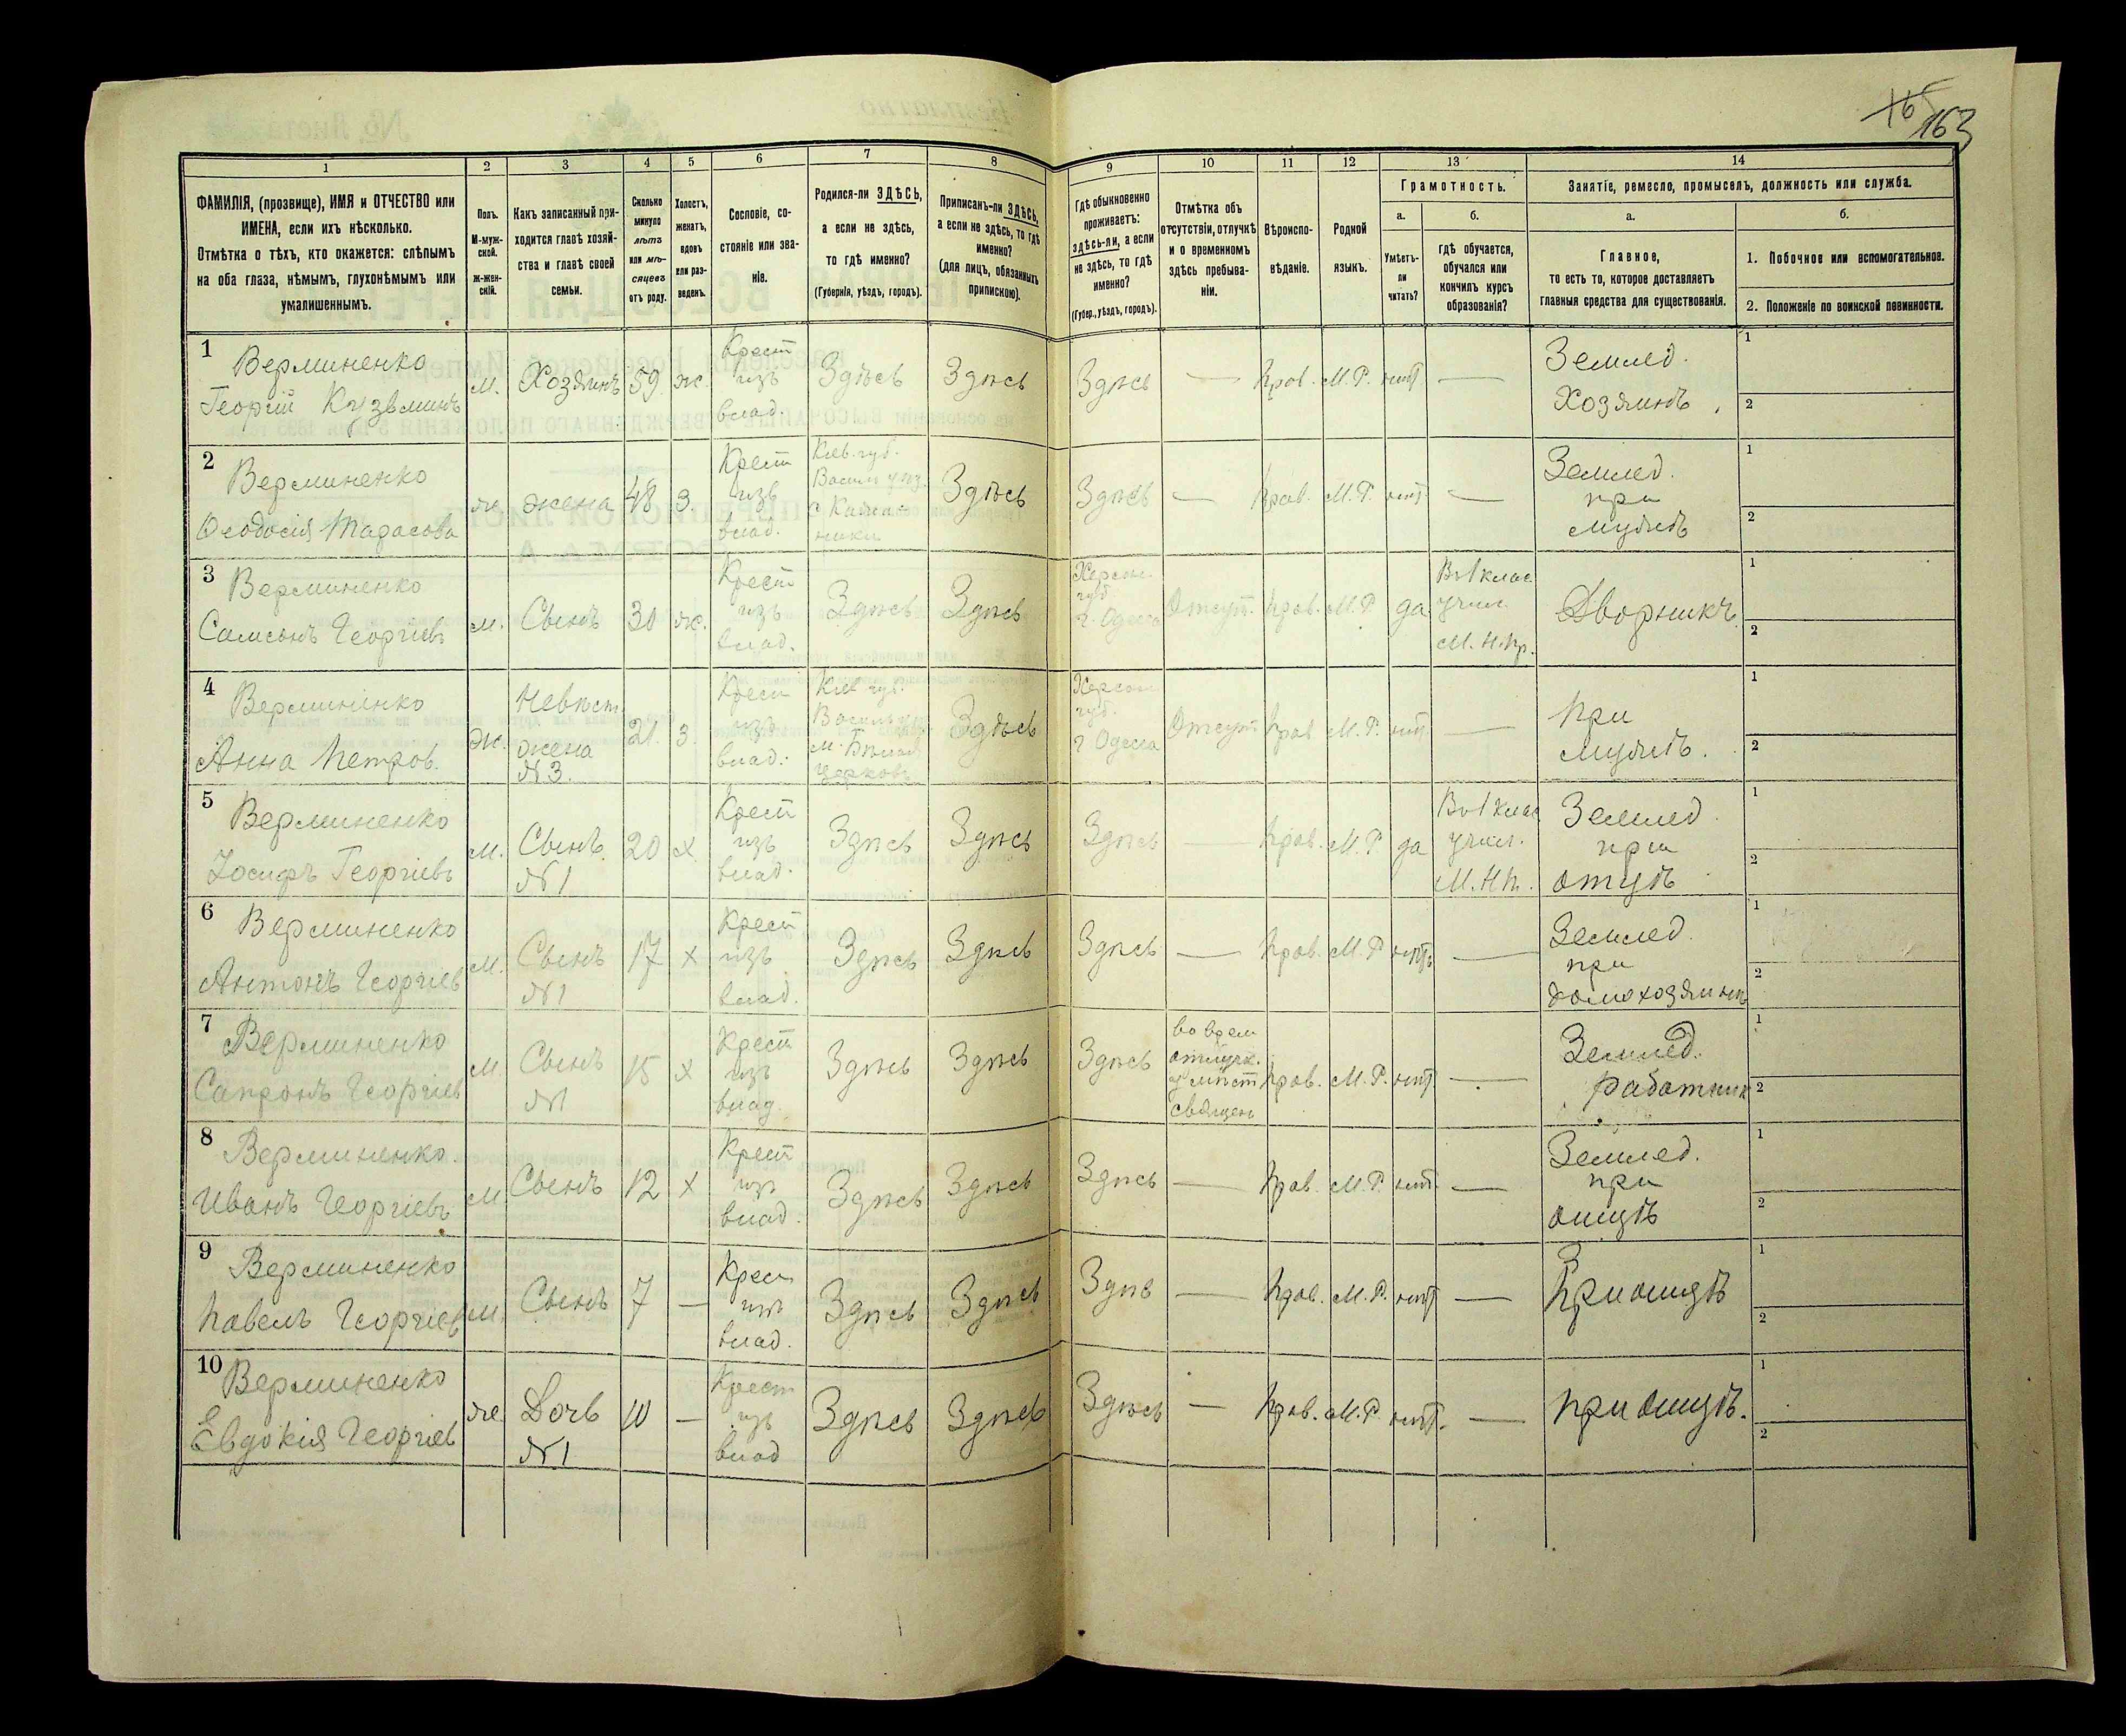 163
1
2
3
4
5
6
7
8
9
10
11
12
13
14
ФАМИЛІЯ, (прозвище), ИМЯ и ОТЧЕСТВО или
ИМЕНА, если ихъ нѣсколько.
Отмѣтка о тѣхъ, кто окажется: слѣпымъ
на оба глаза, нѣмымъ, глухонѣмымъ или
умалишеннымъ.
Полъ.
М-муж-
ской.
ж-жен-
скій.
Какъ записанный при-
ходится главѣ хозяй-
ства и главѣ своей
семьи.
Сколько
минуло
лѣтъ
или мѣ-
сяцевъ
отъ роду.
Холостъ,
женатъ,
вдовъ
или раз-
веденъ.
Сословіе, со-
стояніе или зва-
ніе.
Родился-ли ЗДѢСЬ,
а если не здѣсь,
то гдѣ именно?
(Губернія, уѣздъ, городъ).
Приписанъ-ли ЗДѢСЬ,
а если не здѣсь, то гдѣ
именно?
(для лицъ, обязанныхъ
припискою).
Гдѣ обыкновенно
проживаетъ:
здѣсь-ли, а если
не здѣсь, то гдѣ
именно?
(Губер., уѣздъ, городъ).
Отмѣтка объ
отсутствіи, отлучкѣ
и о временномъ
здѣсь пребыва-
ніи.
Вѣроиспо-
вѣданіе.
Родной
языкъ.
Грамотность.
а.
Умѣетъ-
ли
читать?
б.
гдѣ обучается,
обучался или
кончилъ курсъ
образованія?
Занятіе, ремесло, промыселъ, должность или служба.
а.
Главное,
то есть то, которое доставляетъ
главныя средства для существованія.
б.
1. Побочное или вспомогательное.
2. Положеніе по воинской повинности.
1
Верминенко
Георгій Кузьминъ
м.
Хозяинъ
59
ж.
Крест
изъ
влад.
Здѣсь
Здѣсь
Здѣсь
—
Прав.
М.Р.
нѣт
—
Землед.
Хозяинъ
1
2
2
Верминенко
Ѳеодосія Тарасова
ж.
жена
48
з.
Крест
изъ
влад.
Кіев. губ.
Васил
с
Здѣсь
Здѣсь
—
Прав.
М.Р.
нѣт.
—
Землед.
при
мужѣ
1
2
3
Верминенко
Самсонъ Георгіевъ
м.
Сынъ
30
ж.
Крест
изъ
влад.
Здѣсь
Здѣсь
Херсон
губ
г. Одесса
Отсут.
Прав.
М.Р.
да
Въ 1 клас
учил.
М.Н.Пр.
Дворникъ
1
2
4
Верминенко
Анна Петров.
ж.
Невѣст
жена
№3.
21.
з.
Крест
изъ
влад.
Кіев губ.
Васильк
м. Бѣлая
Церковь
Здѣсь
Херсон
губ.
г Одесса
Отсут
Прав
М.Р.
нѣт.
—
При
мужѣ.
1
2
5
Верминенко
Іосифъ Георгіевъ
м.
Сынъ
№1
20
х.
Крест
изъ
влад.
Здѣсь
Здѣсь
Здѣсь
—
Прав.
М.Р
да
Въ 1 клас
учил.
М.Н.П.
Землед
при
отцѣ
1
2
6
Верминенко
Антонъ Георгіев
м.
Сынъ
№1
17
х
Крест
изъ
влад.
Здѣсь
Здѣсь
Здѣсь
—
Прав.
М.Р
нѣтъ
—
Землед.
при
домохозяинѣ
1
2
7
Верминенко
Сапронъ Георгіев
м.
Сынъ
№1
15
х
Крест
изъ
влад.
Здѣсь
Здѣсь
Здѣсь
во врем
отлучк.
у мѣст
священ
Прав.
М.Р.
нѣт.
—
Землед.
работник
1
2
8
Верминенко.
Иванъ Георгіевъ
м
Сынъ
12
х
Крест
изъ
влад.
Здѣсь
Здѣсь
Здѣсь
—
Прав.
М.Р.
нѣт.
—
Землед.
при
отцѣ
1
2
9
Верминенко
Павелъ Георгіев
м.
Сынъ
7
—
Крест
изъ
влад.
Здѣсь
Здѣсь
—
Прав.
М.Р.
нѣт
—
При отцѣ
1
2
10
Верминенко
Евдокія Георгіев
же.
Дочь
№1
10
—
Крест
изъ
влад
Здѣсь
Здѣсь
Здѣсь
—
Прав.
М.Р.
нѣт.
—
При отцѣ.
1
2